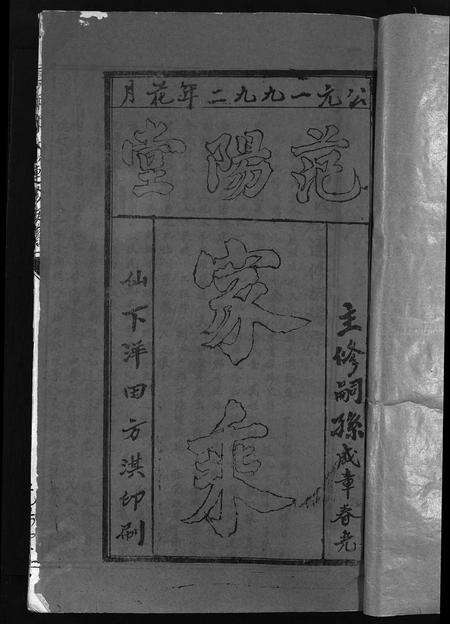 公元一九九二年花月
范陽堂
主修嗣孫成章春堯
家乘
仙下洋田方淇印刷